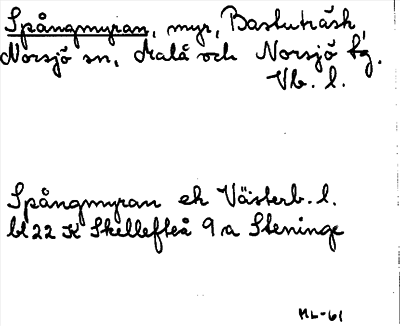 Spångmyran, myr, Basluträsk,
Norsjö sn, Malå och Norsjö tg.
Vb. l.
Spångmyran ek Västerb. l.
bl 22 K Skellefteå 9 a Steninge
ML-61